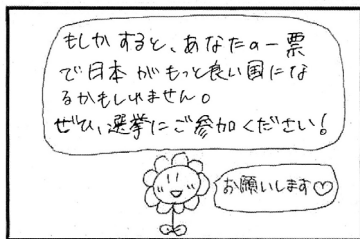 もしかすると、あなたの一票
で日本がもっと良い国にな
るかもしれません。
ぜひ、選挙にご参加ください!
お願いします♡